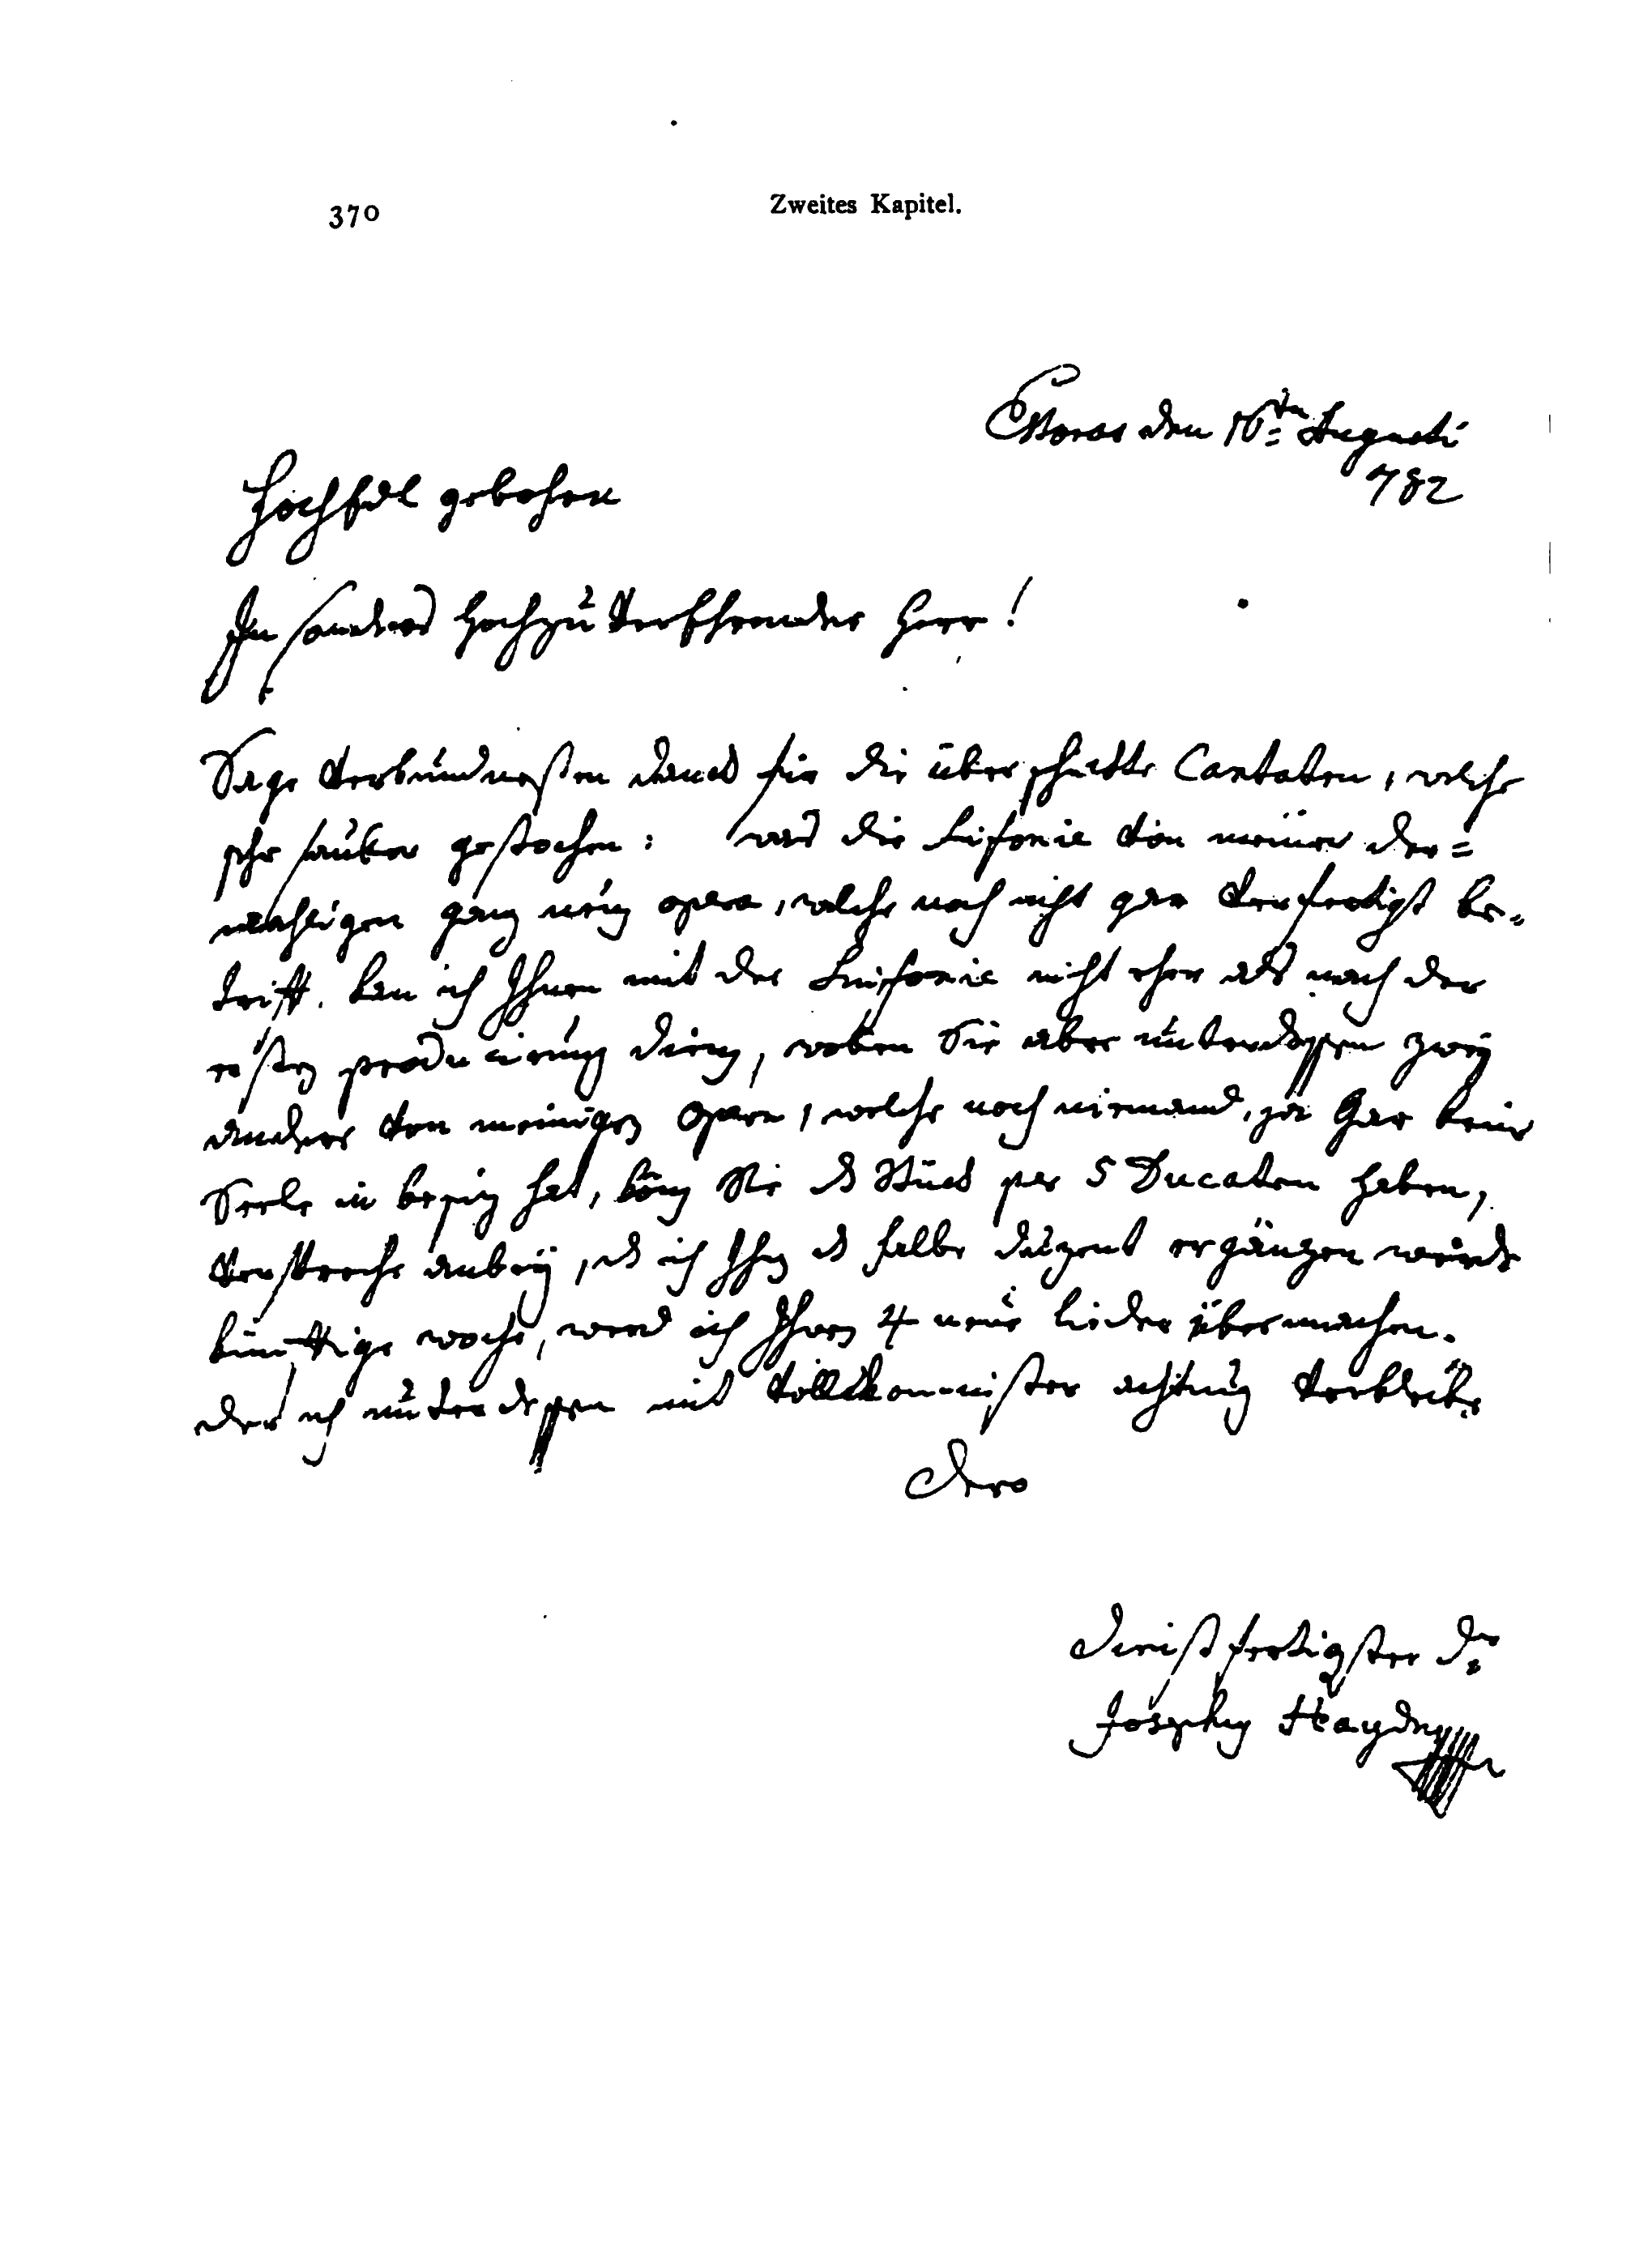 370
Zweites Kapitel.
Estoras den 16ten Augusti
782
HochEdl gebohren
In sonders Hochzu VerEhrender Herr!
Sage Verbundnesten danck für die überschickte Cantaten, welche
sehr sauber gestochen: was die Sinfonie von meiner der=
mahligen ganz neuen opera, welche noch nicht gar Verfertigt be=
trifft. kan ich Ihnen mit der Sinfonie nicht eher als nach der
ersten producirung dienen, wollen Sie aber unterdessen zwey
andere von meinigen Opern, welche noch niemand, ja Gar keine
Seele in besitz hat, können Sie das Stück per 5 Ducaten haben,
Verspreche anbey, das ich Ihnen das halbe duzent ergänzen werde
künftige woche, werd ich Ihnen 4 neue Lieder übermachen.
der ich unterdessen mit Vollkommnister achtung Verbleibe
Dero
dienstfertigster Dr
Josephus Haydn